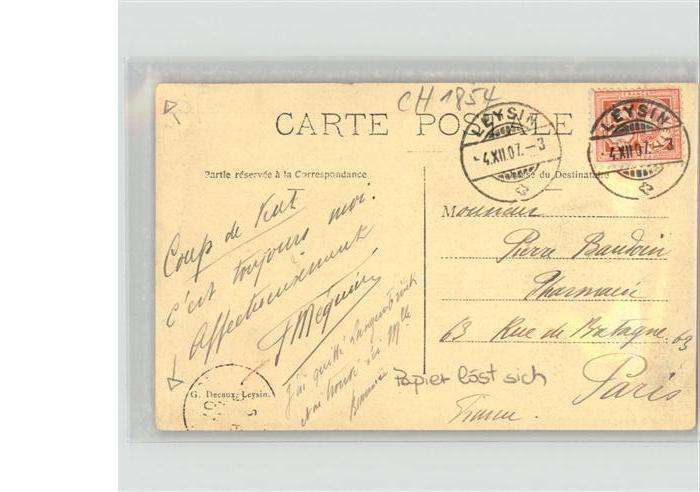 CH 1854
CARTE POSTALE
LEYSIN
4.XII.07.-3
LEYSIN
4.XII.07.-3
Partie réservée à la Correspondance
du Destinataire
Coup de Vent
c'est toujours moi.
Affectueusement
J Méquin
J'ai quitté
Mlle
Monsieur
Pierre Baudoin
Pharmacie
63 Rue de Bretagne. 63
Paris
France.
Papier löst sich
G. Decaux, Leysin.